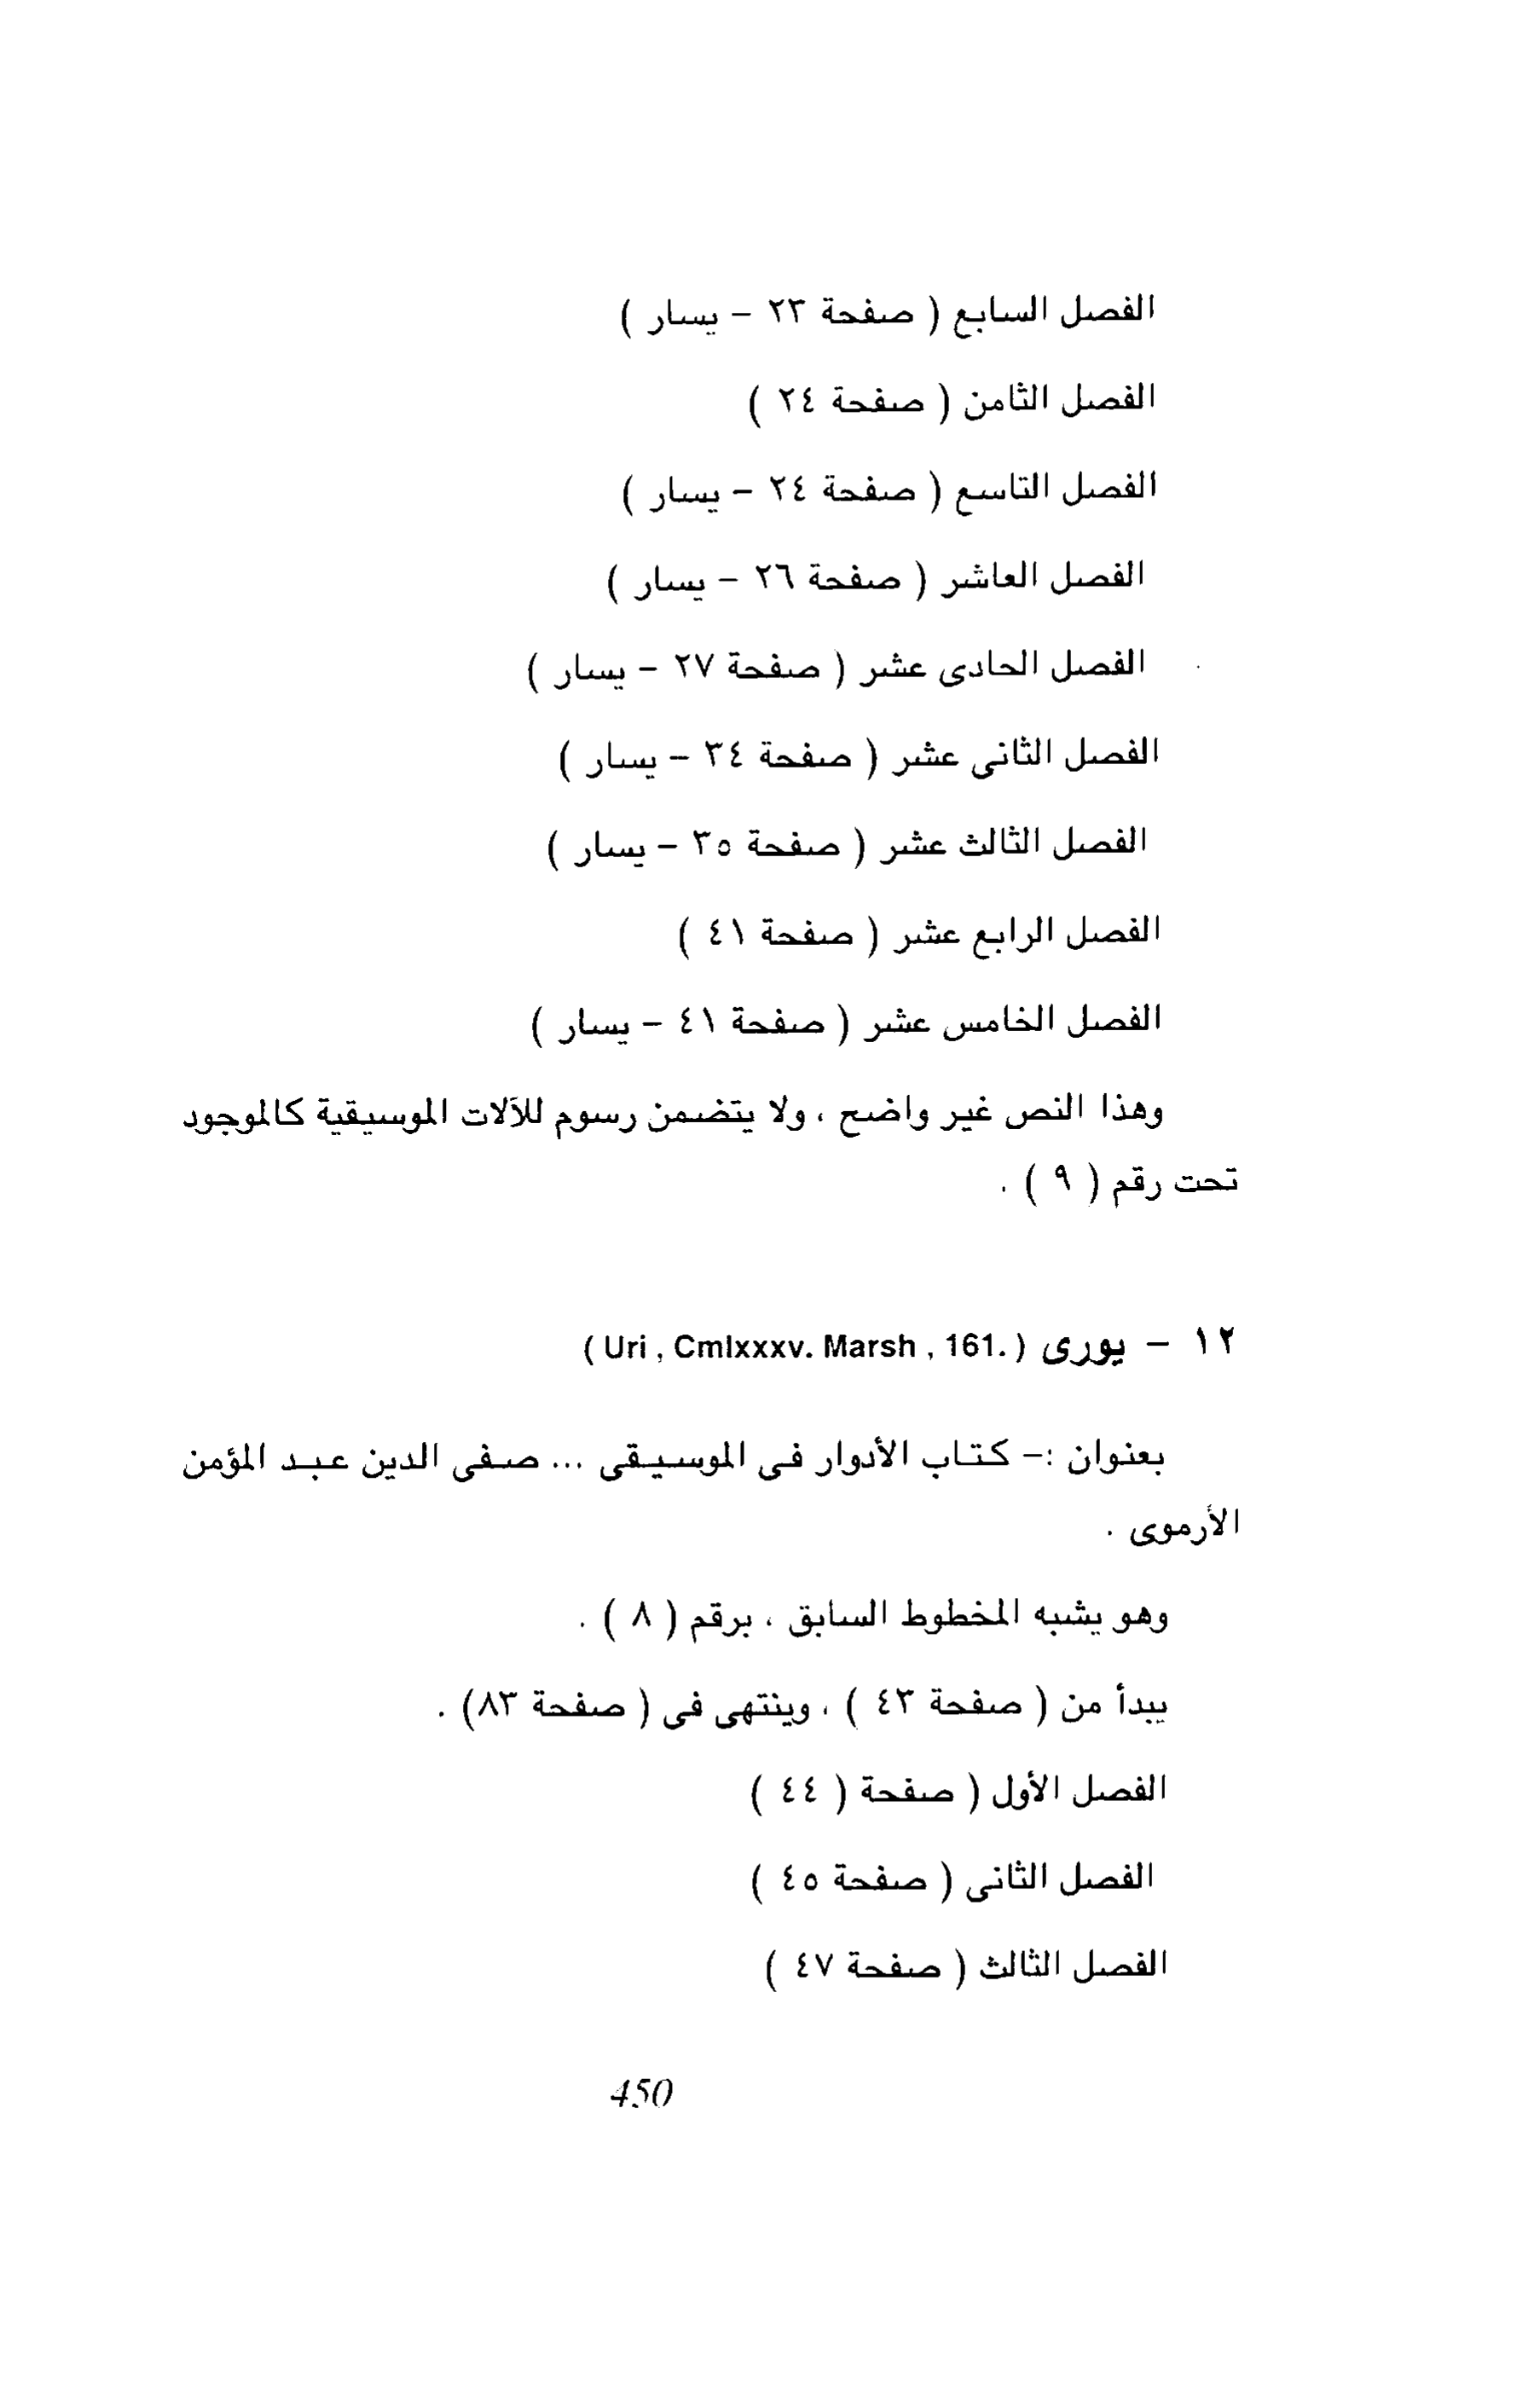 الفصل السابع ( صفحة ٢٣ - يسار )
الفصل الثامن ( صفحة ٢٤ )
الفصل التاسع ( صفحة ٢٤ - يسار )
الفصل العاشر ( صفحة ٢٦ - يسار )
الفصل الحادى عشر ( صفحة ٢٧ - يسار )
الفصل الثانى عشر ( صفحة ٣٤ - يسار )
الفصل الثالث عشر ( صفحة ٣٥ - يسار )
الفصل الرابع عشر ( صفحة ٤١ )
الفصل الخامس عشر ( صفحة ٤١ - يسار )
وهذا النص غير واضح ، ولا يتضمن رسوم للآلات الموسيقية كالموجود
تحت رقم ( ٩ ) .
١٢ - يورى ( Uri , Cmlxxxv. Marsh , 161. )
بعنوان :- كتاب الأدوار فى الموسيقى ... صفى الدين عبد المؤمن
الأرموى .
وهو يشبه المخطوط السابق ، برقم ( ٨ ) .
يبدأ من ( صفحة ٤٣ ) ، وينتهى فى ( صفحة ٨٣) .
الفصل الأول ( صفحة ( ٤٤ )
الفصل الثانى ( صفحة ٤٥ )
الفصل الثالث ( صفحة ٤٧ )
450